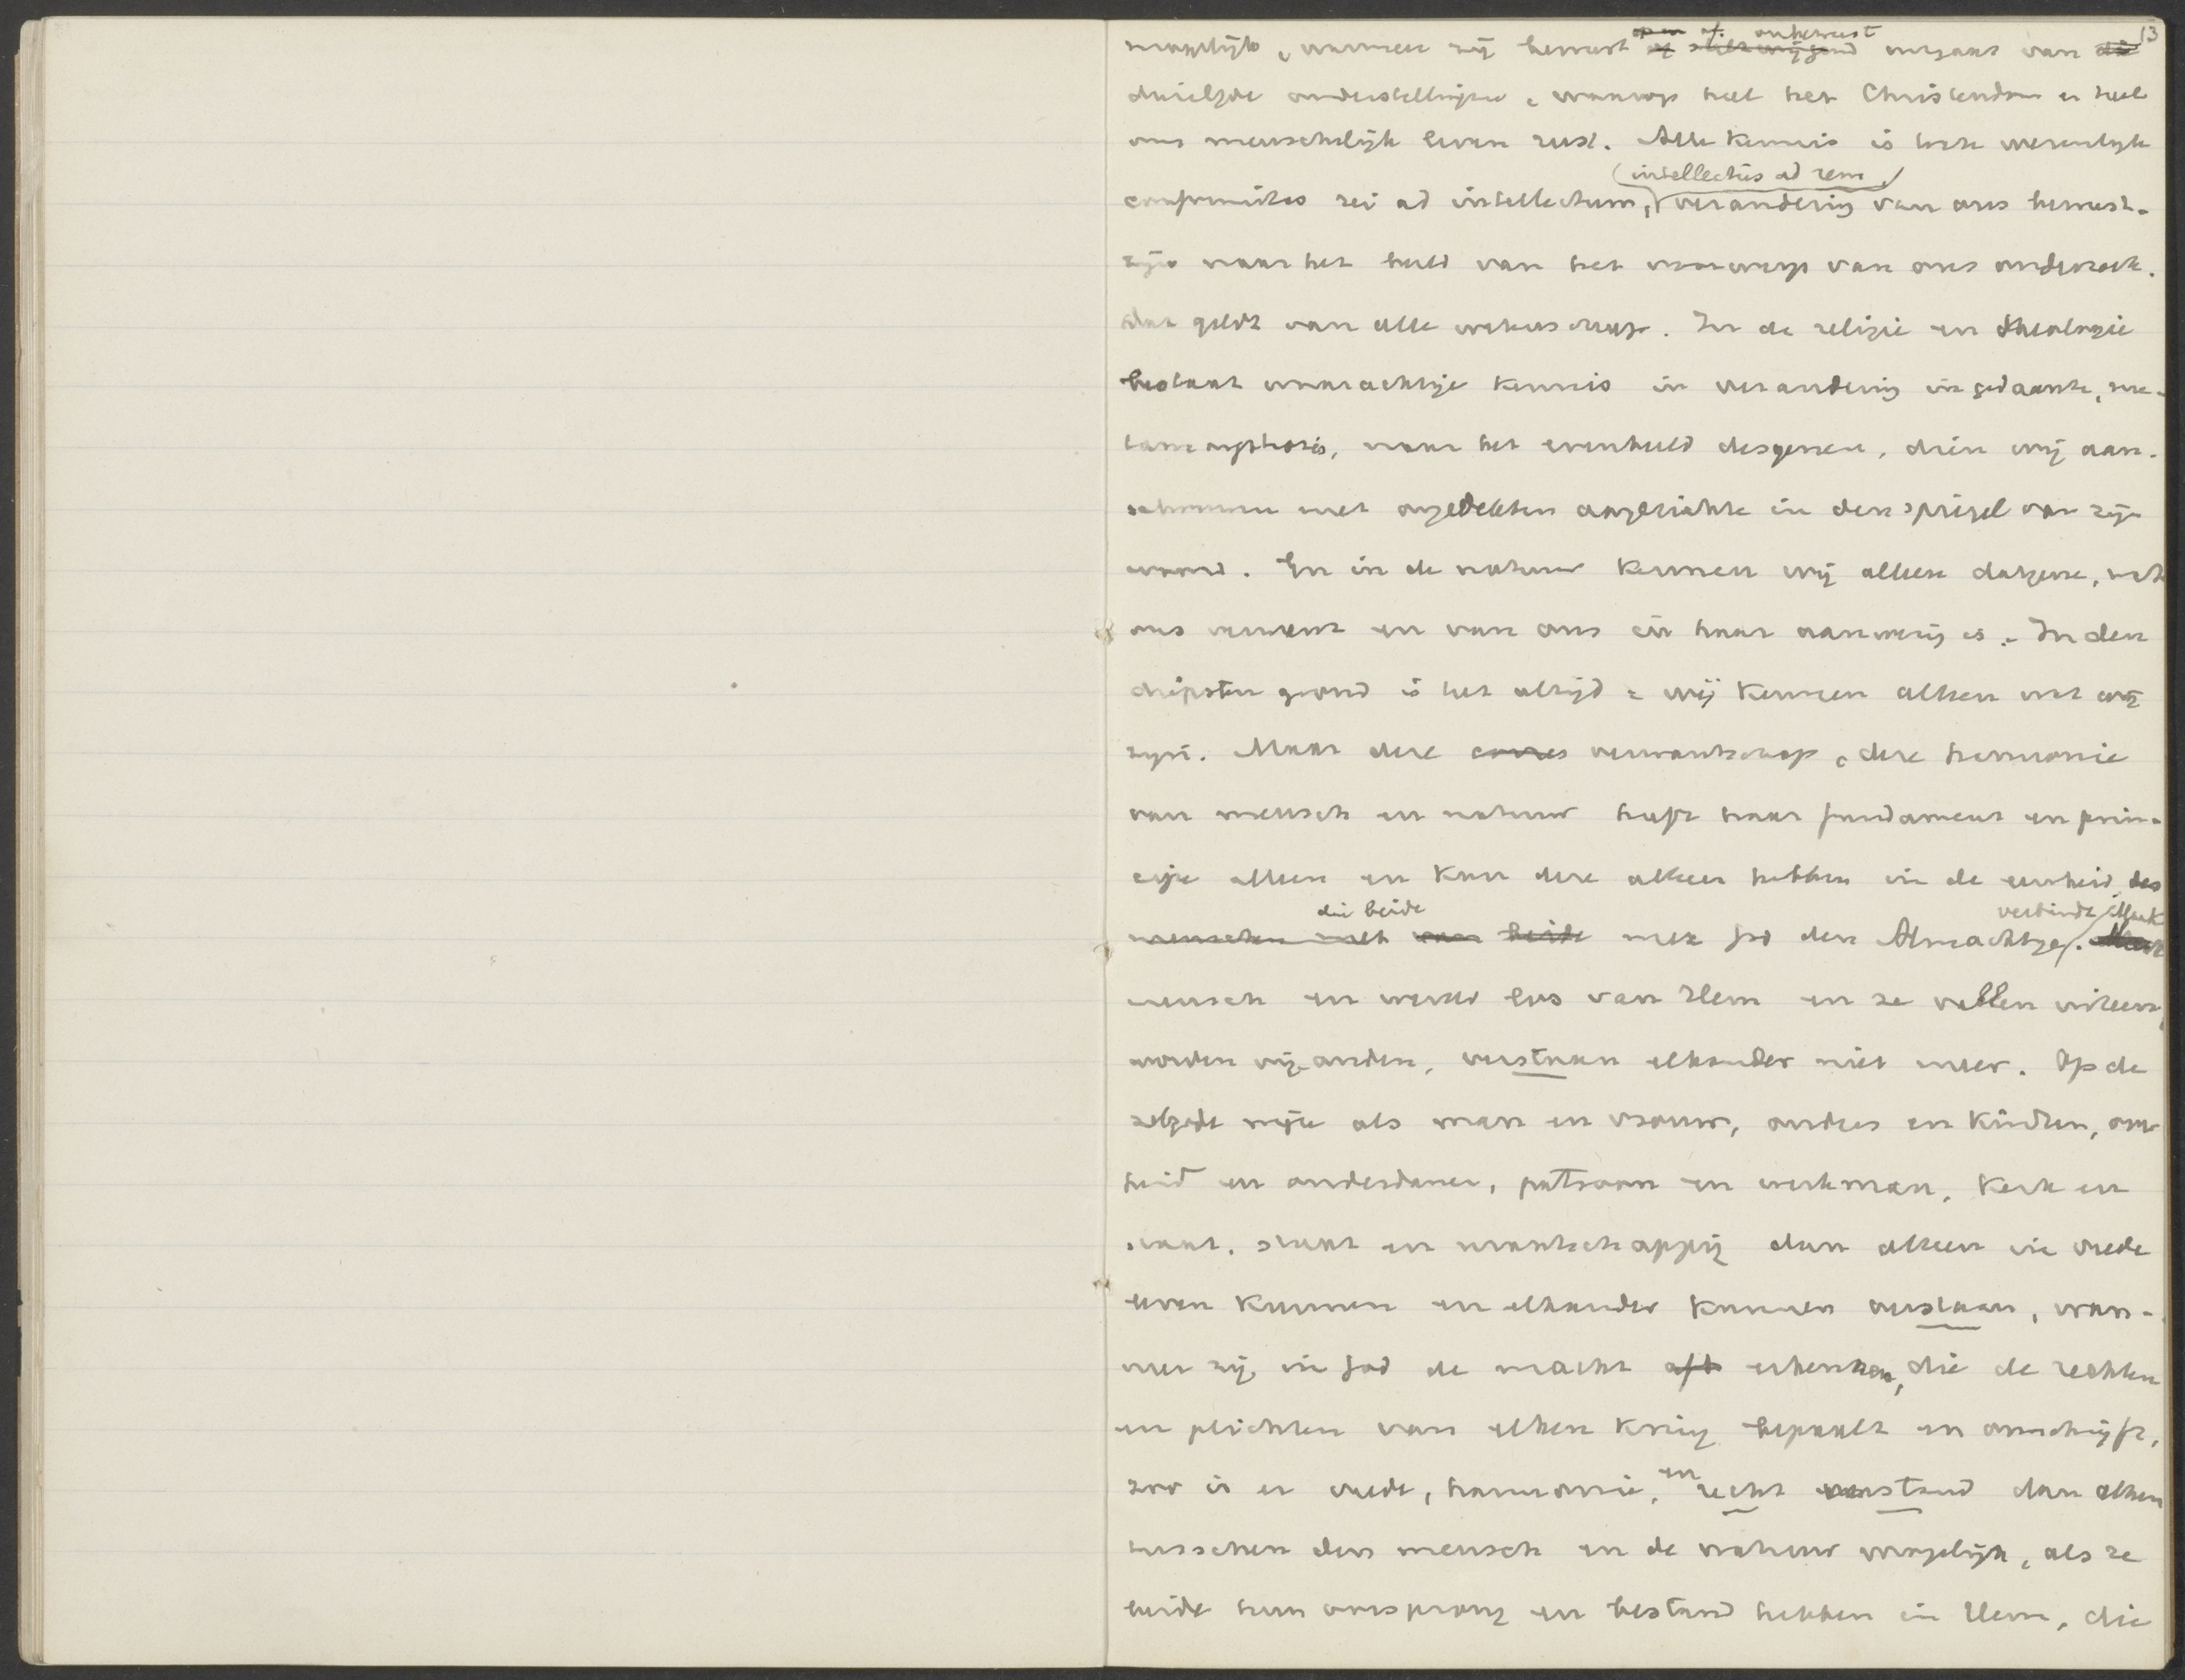 13
mogelijk, wanneer zij bewust of onbewust uitgaat van
dezelfde onderstellingen, waarop heel het Christendom en heel
ons menschelijk leven rust. Alle kennis is toch wezenlijk
conformitas rei ad intellectum, (intellectus ad rem,) verandering van ons bewust-
zijn naar het beeld van het voorwerp van ons onderzoek.
Dat geldt van alle wetenschap. In de religie en theologie
bestaat waarachtige kennis in verandering in gedaante, me-
tamorphosis, naar het evenbeeld desgenen, dien wij aan-
schouwen met ongedekten aangezichte in den spiegel van zijn
woord. En in de natuur kennen wij alleen datgene, wat
ons verwant en van ons in haar aanwezig is. In den
diepsten grond is het altijd: wij kennen alleen wat wij
zijn. Maar deze verwantschap, deze harmonie
van mensch en natuur heeft haar fundament en prin-
cipe alleen en kan deze alleen hebben in de eenheid, die beide
met God den Almachtige verbindt. Maak
mensch en wereld los van Hem en ze vallen uiteen,
worden vijanden, verstaan elkander niet meer. Op de
zelfde wijze als man en vrouw, ouders en kinderen, over-
heid en onderdanen, patroon en werkman, kerk en
staat, staat en maatschappij dan alleen in vrede
leven kunnen en elkander kunnen verstaan, wan-
neer zij in God de macht erkennen, die de rechten
en plichten van elken kring bepaalt en omschrijft,
zoo is er vrede, harmonie, en recht verstand dan alleen
tusschen den mensch en de natuur mogelijk, als ze
beide hun oorsprong en bestand hebben in Hem, die